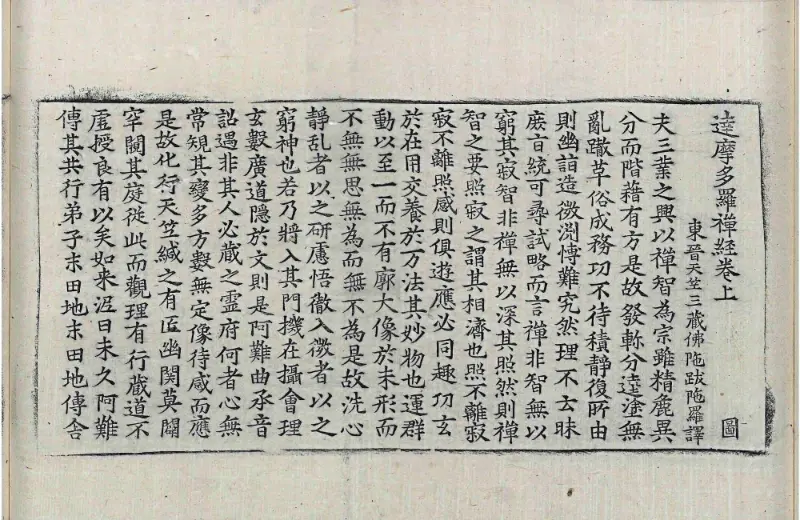 達摩多羅禪經卷上 圖
東晉天竺三藏佛陁跋陁羅譯
夫三業之興以禪智為宗雖精麁異
分而階藉有方是故發軫分逵塗無
亂轍革俗成務功不待積靜復所由
則幽詣造微淵博難究然理不云昧
庻旨統可尋試略而言禪非智無以
窮其寂智非禪無以深其照然則禪
智之要照寂之謂其相濟也照不離寂
寂不離照感則俱遊應必同趣功玄
於在用交養於万法其妙物也運群
動以至一而不有廓大像於未形而
不無無思無為而無不為是故洗心
靜乱者以之研慮悟徹入微者以之
窮神也若乃將入其門機在攝會理
玄數廣道隱於文則是阿難曲承音
詔遇非其人必蔵之靈府何者心無
常規其變多方數無定像待感而應
是故化行天竺緘之有匠幽関莫闢
罕闚其庭從此而觀理有行蔵道不
虛授良有以矣如来泥曰未久阿難
傳其共行弟子末田地末田地傳舍